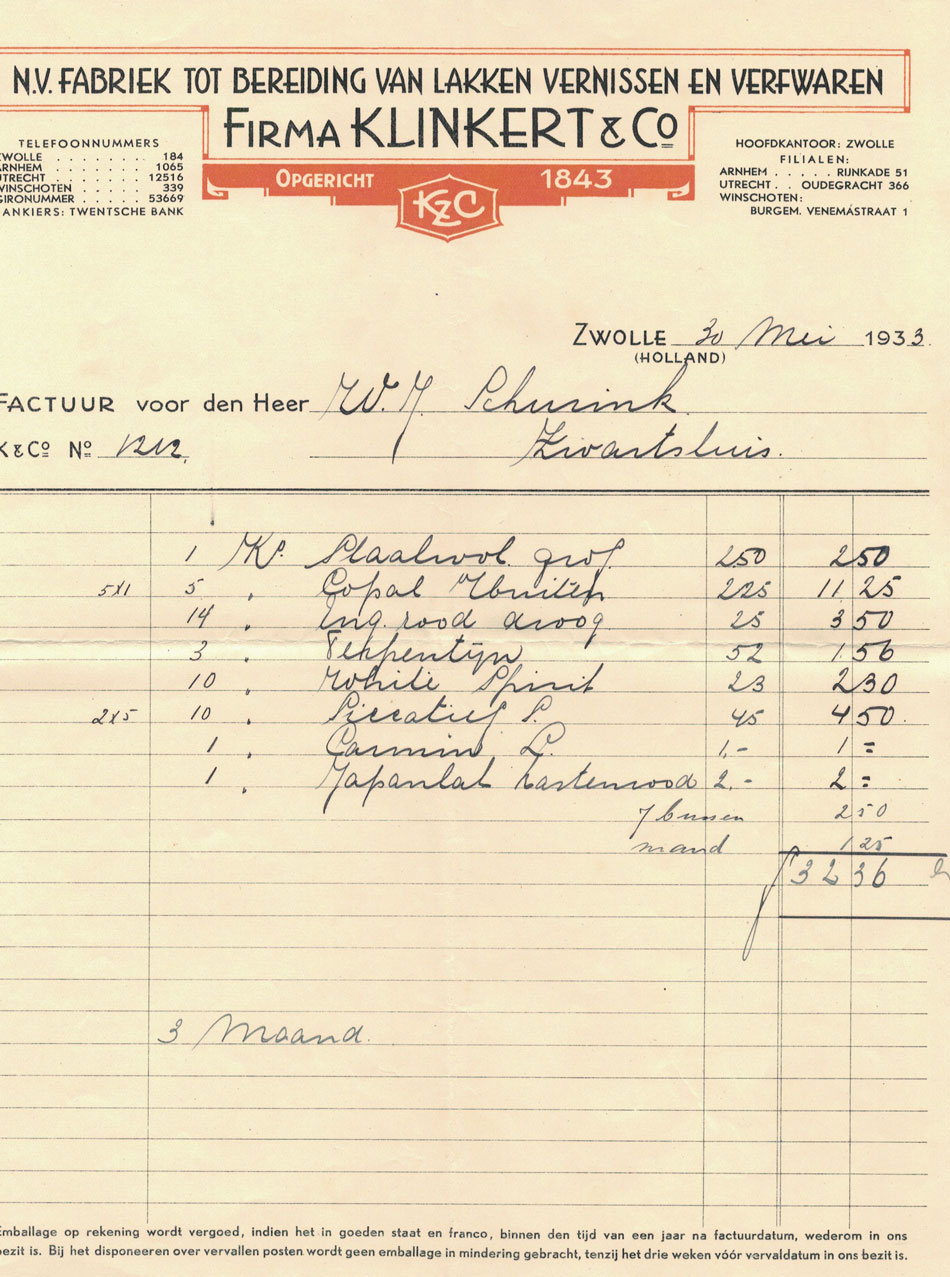 N.V. FABRIEK TOT BEREIDING VAN LAKKEN VERNISSEN EN VERFWAREN
FIRMA KLINKERT & Co
OPGERICHT 1843
KZC
TELEFOONNUMMERS
ZWOLLE . . . . . . . . 184
ARNHEM . . . . . . . . 1065
UTRECHT . . . . . . . 12516
WINSCHOTEN . . . . . 339
GIRONUMMER . . . . . 53669
BANKIERS: TWENTSCHE BANK
HOOFDKANTOOR: ZWOLLE
FILIALEN:
ARNHEM . . . . . RIJNKADE 51
UTRECHT . . OUDEGRACHT 366
WINSCHOTEN:
BURGEM. VENEMASTRAAT 1
ZWOLLE 30 Mei 1933.
(HOLLAND)
FACTUUR voor den Heer W. J. Schurink
K & Co No 1212. Zwartsluis.
1 Kº. Staalwol grof. 250 2 50
5x1 5 " Copal Hbuiten 225 11 25
14 " Eng. rood droog 25 3 50
3 " Terpentijn 52 1 56
10 " White Spirit 23 2 30
2x5 10 " Siccatief S. 45 4 50.
1 " Carmin L. 1,- 1 =
1 " Japanlak kastenrood 2.- 2 =
7 bussen 2 50
mand 1 25
f 32 36
3 Maand.
Emballage op rekening wordt vergoed, indien het in goeden staat en franco, binnen den tijd van een jaar na factuurdatum, wederom in ons
bezit is. Bij het disponeeren over vervallen posten wordt geen emballage in mindering gebracht, tenzij het drie weken vóór vervaldatum in ons bezit is.